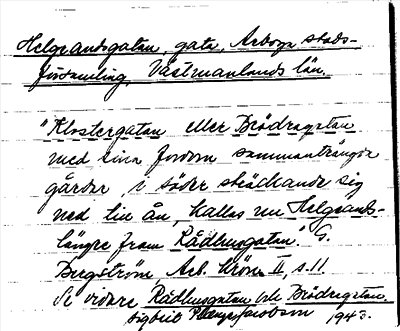 Helgeandsgatan, gata, Arboga stads-
församling, Västmanlands län.
"Klostergatan eller Brödragatan
med sina fordom sammanträngda
gårdar, i söder sträckande sig
ned till ån, kallas nu Helgeands-
längre fram Rådhusgatan". G.
Bergström, Arb. krön. II, s. 11.
Se vidare Rådhusgatan och Brödragatan.
Sigbrit Plænge Jacobson 1943.